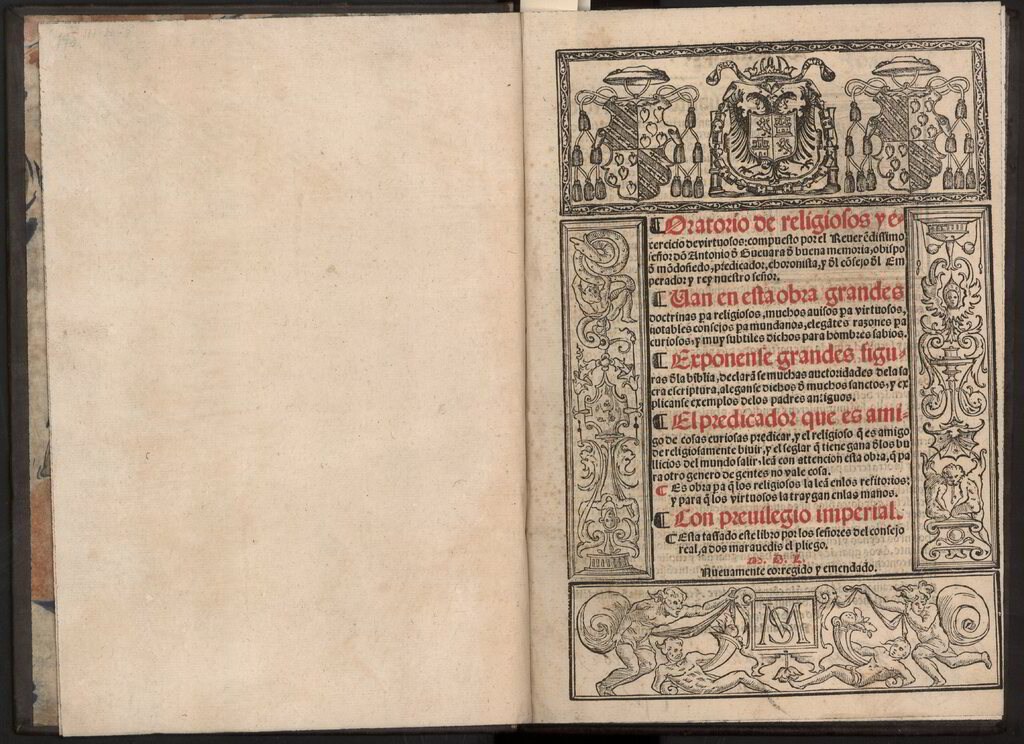 ¶ Oratorio de religiosos y e-
xercicio de virtuosos: compuesto por el Reuerẽdissimo
señor dõ Antonio đ Gueuara đ buena memoria, obispo
đ mõdoñedo, predicador, choronista, y đl cõsejo đl Em
perador y rey nuestro señor.
¶ Uan en esta obra grandes
doctrinas pa religiosos, muchos auisos pa virtuosos,
notables consejos pa mundanos, elegãtes razones pa
curiosos, y muy subtiles dichos para hombres sabios.
¶ Exponense grandes figu-
ras đla biblia, declarã se muchas auctoridades dela sa
cra escriptura, aleganse dichos đ muchos sanctos, y ex
plicanse exemplos delos padres antiguos.
¶ El predicador que es ami-
go de cosas curiosas predicar, y el religioso q̃ es amigo
de religiosamente biuir, y el seglar q̃ tiene gana đlos bu
llicios del mundo salir, leã con attencion esta obra, q̃ pa
ra otro genero de gentes no vale cosa.
¶ Es obra pa q̃ los religiosos la leã enlos refitorios:
y para q̃ los virtuosos la traygan enlas manos.
¶ Con preuilegio imperial.
¶ Esta tassado este libro por los señores del consejo
real, a dos marauedis el pliego.
M. D. L.
Nueuamente corregido y emendado.